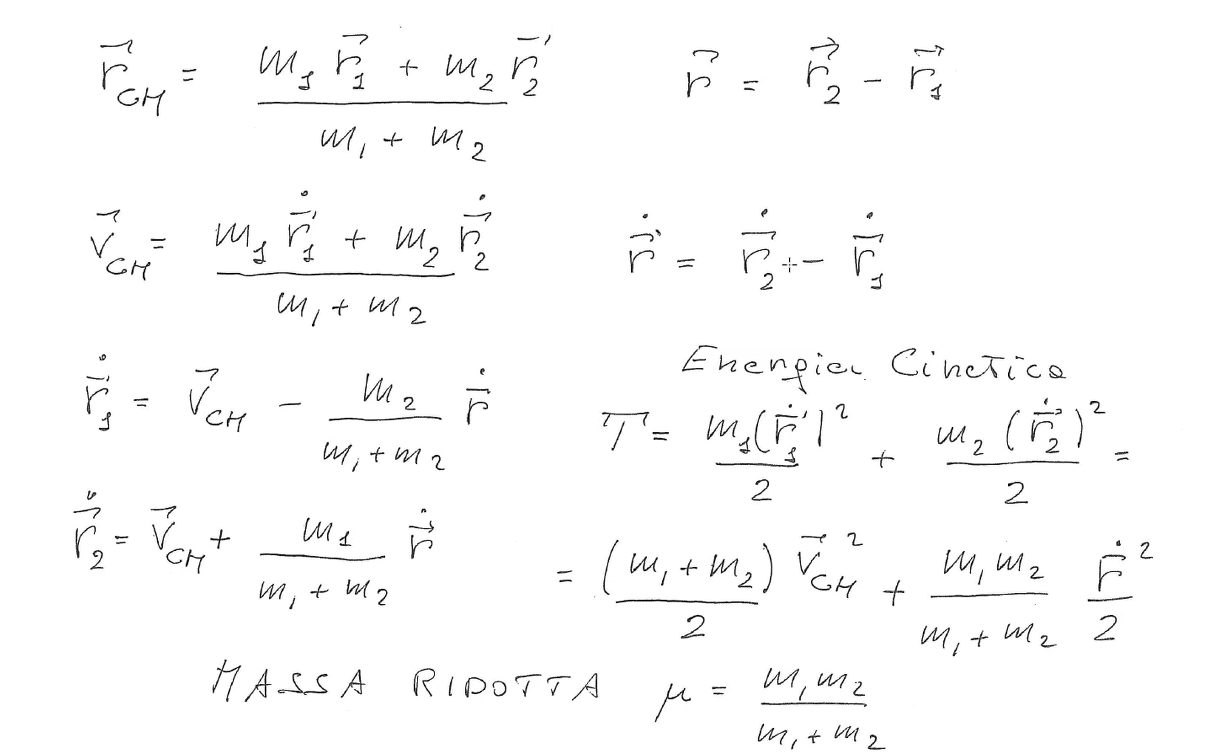 $\vec{r}_{CM} = \frac{m_1 \vec{r}_1 + m_2 \vec{r}_2}{m_1 + m_2}$ $\vec{r} = \vec{r}_2 - \vec{r}_1$
$\vec{v}_{CM} = \frac{m_1 \dot{\vec{r}}_1 + m_2 \dot{\vec{r}}_2}{m_1 + m_2}$ $\dot{\vec{r}} = \dot{\vec{r}}_2 - \dot{\vec{r}}_1$
$\dot{\vec{r}}_1 = \vec{v}_{CM} - \frac{m_2}{m_1 + m_2} \dot{\vec{r}}$
$\dot{\vec{r}}_2 = \vec{v}_{CM} + \frac{m_1}{m_1 + m_2} \dot{\vec{r}}$
Energia Cinetica
$T = \frac{m_1 (\dot{\vec{r}}_1)^2}{2} + \frac{m_2 (\dot{\vec{r}}_2)^2}{2} =$
$= \frac{(m_1 + m_2)}{2} \vec{v}_{CM}^2 + \frac{m_1 m_2}{m_1 + m_2} \frac{\dot{\vec{r}}^2}{2}$
MASSA RIDOTTA $\mu = \frac{m_1 m_2}{m_1 + m_2}$